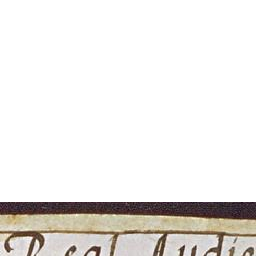 Real Audie